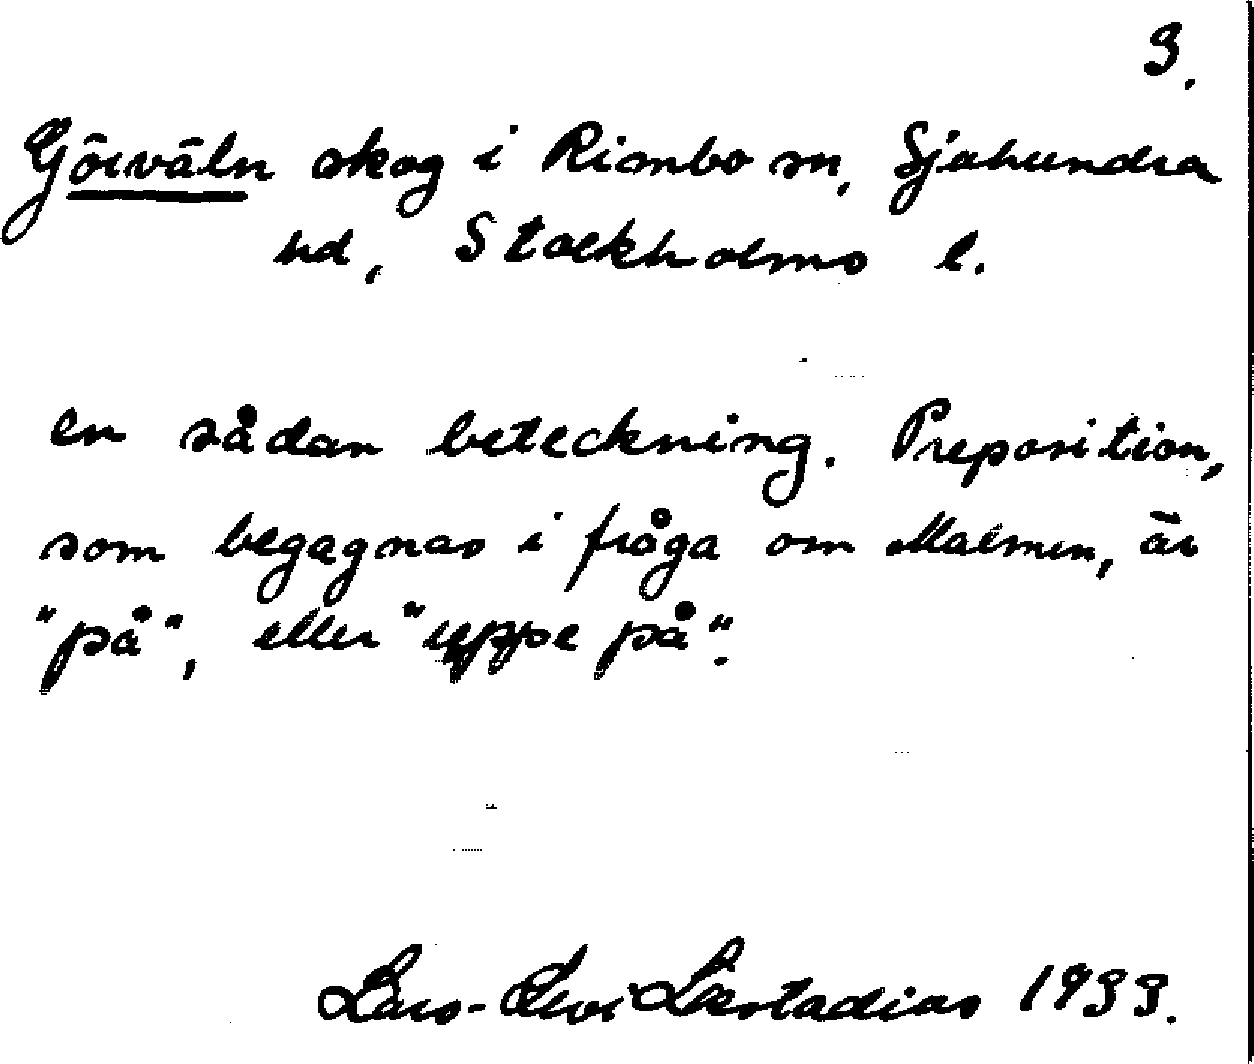 3.
Görväln skog i Rimbo sn, Sjuhundra
hd, Stockholms l.
en sådan beteckning. Preposition,
som begagnas i fråga om Malmen, är
"på", eller "uppe på".
Lars-Levi Læstadius 1933.